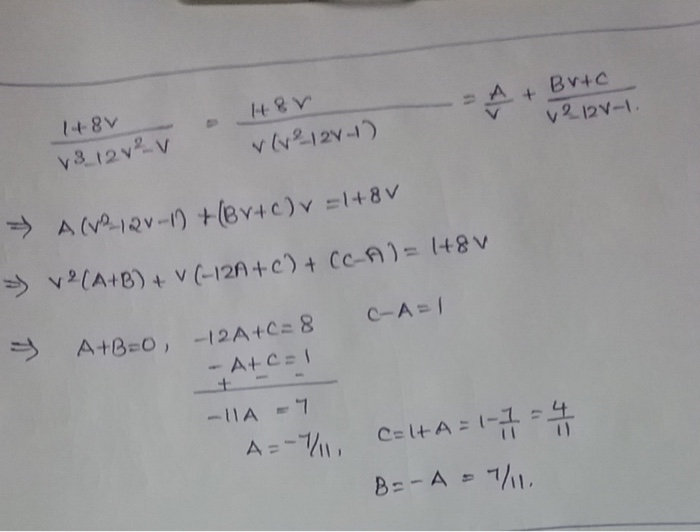 (1+8v)/(v³-12v²-v) = (1+8v)/(v(v²-12v-1)) = A/v + (Bv+C)/(v²-12v-1).
⇒ A(v²-12v-1) + (Bv+C)v = 1+8v
⇒ v²(A+B) + v(-12A+C) + (C-A) = 1+8v
⇒ A+B=0, -12A+C=8 C-A=1
-A+C=1
+ - -
-11A = 7
A=-7/11, C=1+A = 1-7/11 = 4/11
B=-A = 7/11.